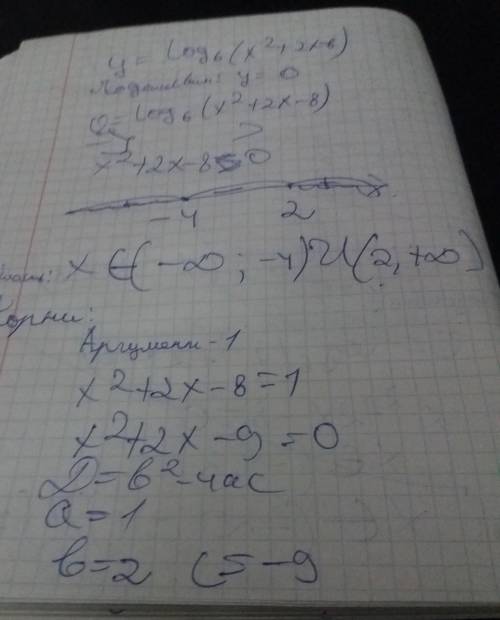 y = log₆(x²+2x-8)
Подставим: y = 0
0 = log₆(x²+2x-8)
x²+2x-8>0
-4 2 x
x ∈ (-∞; -4) U (2, +∞)
Корни:
Аргумент - 1
x²+2x-8=1
x²+2x-9=0
D=b²-4ac
a=1
b=2 c=-9